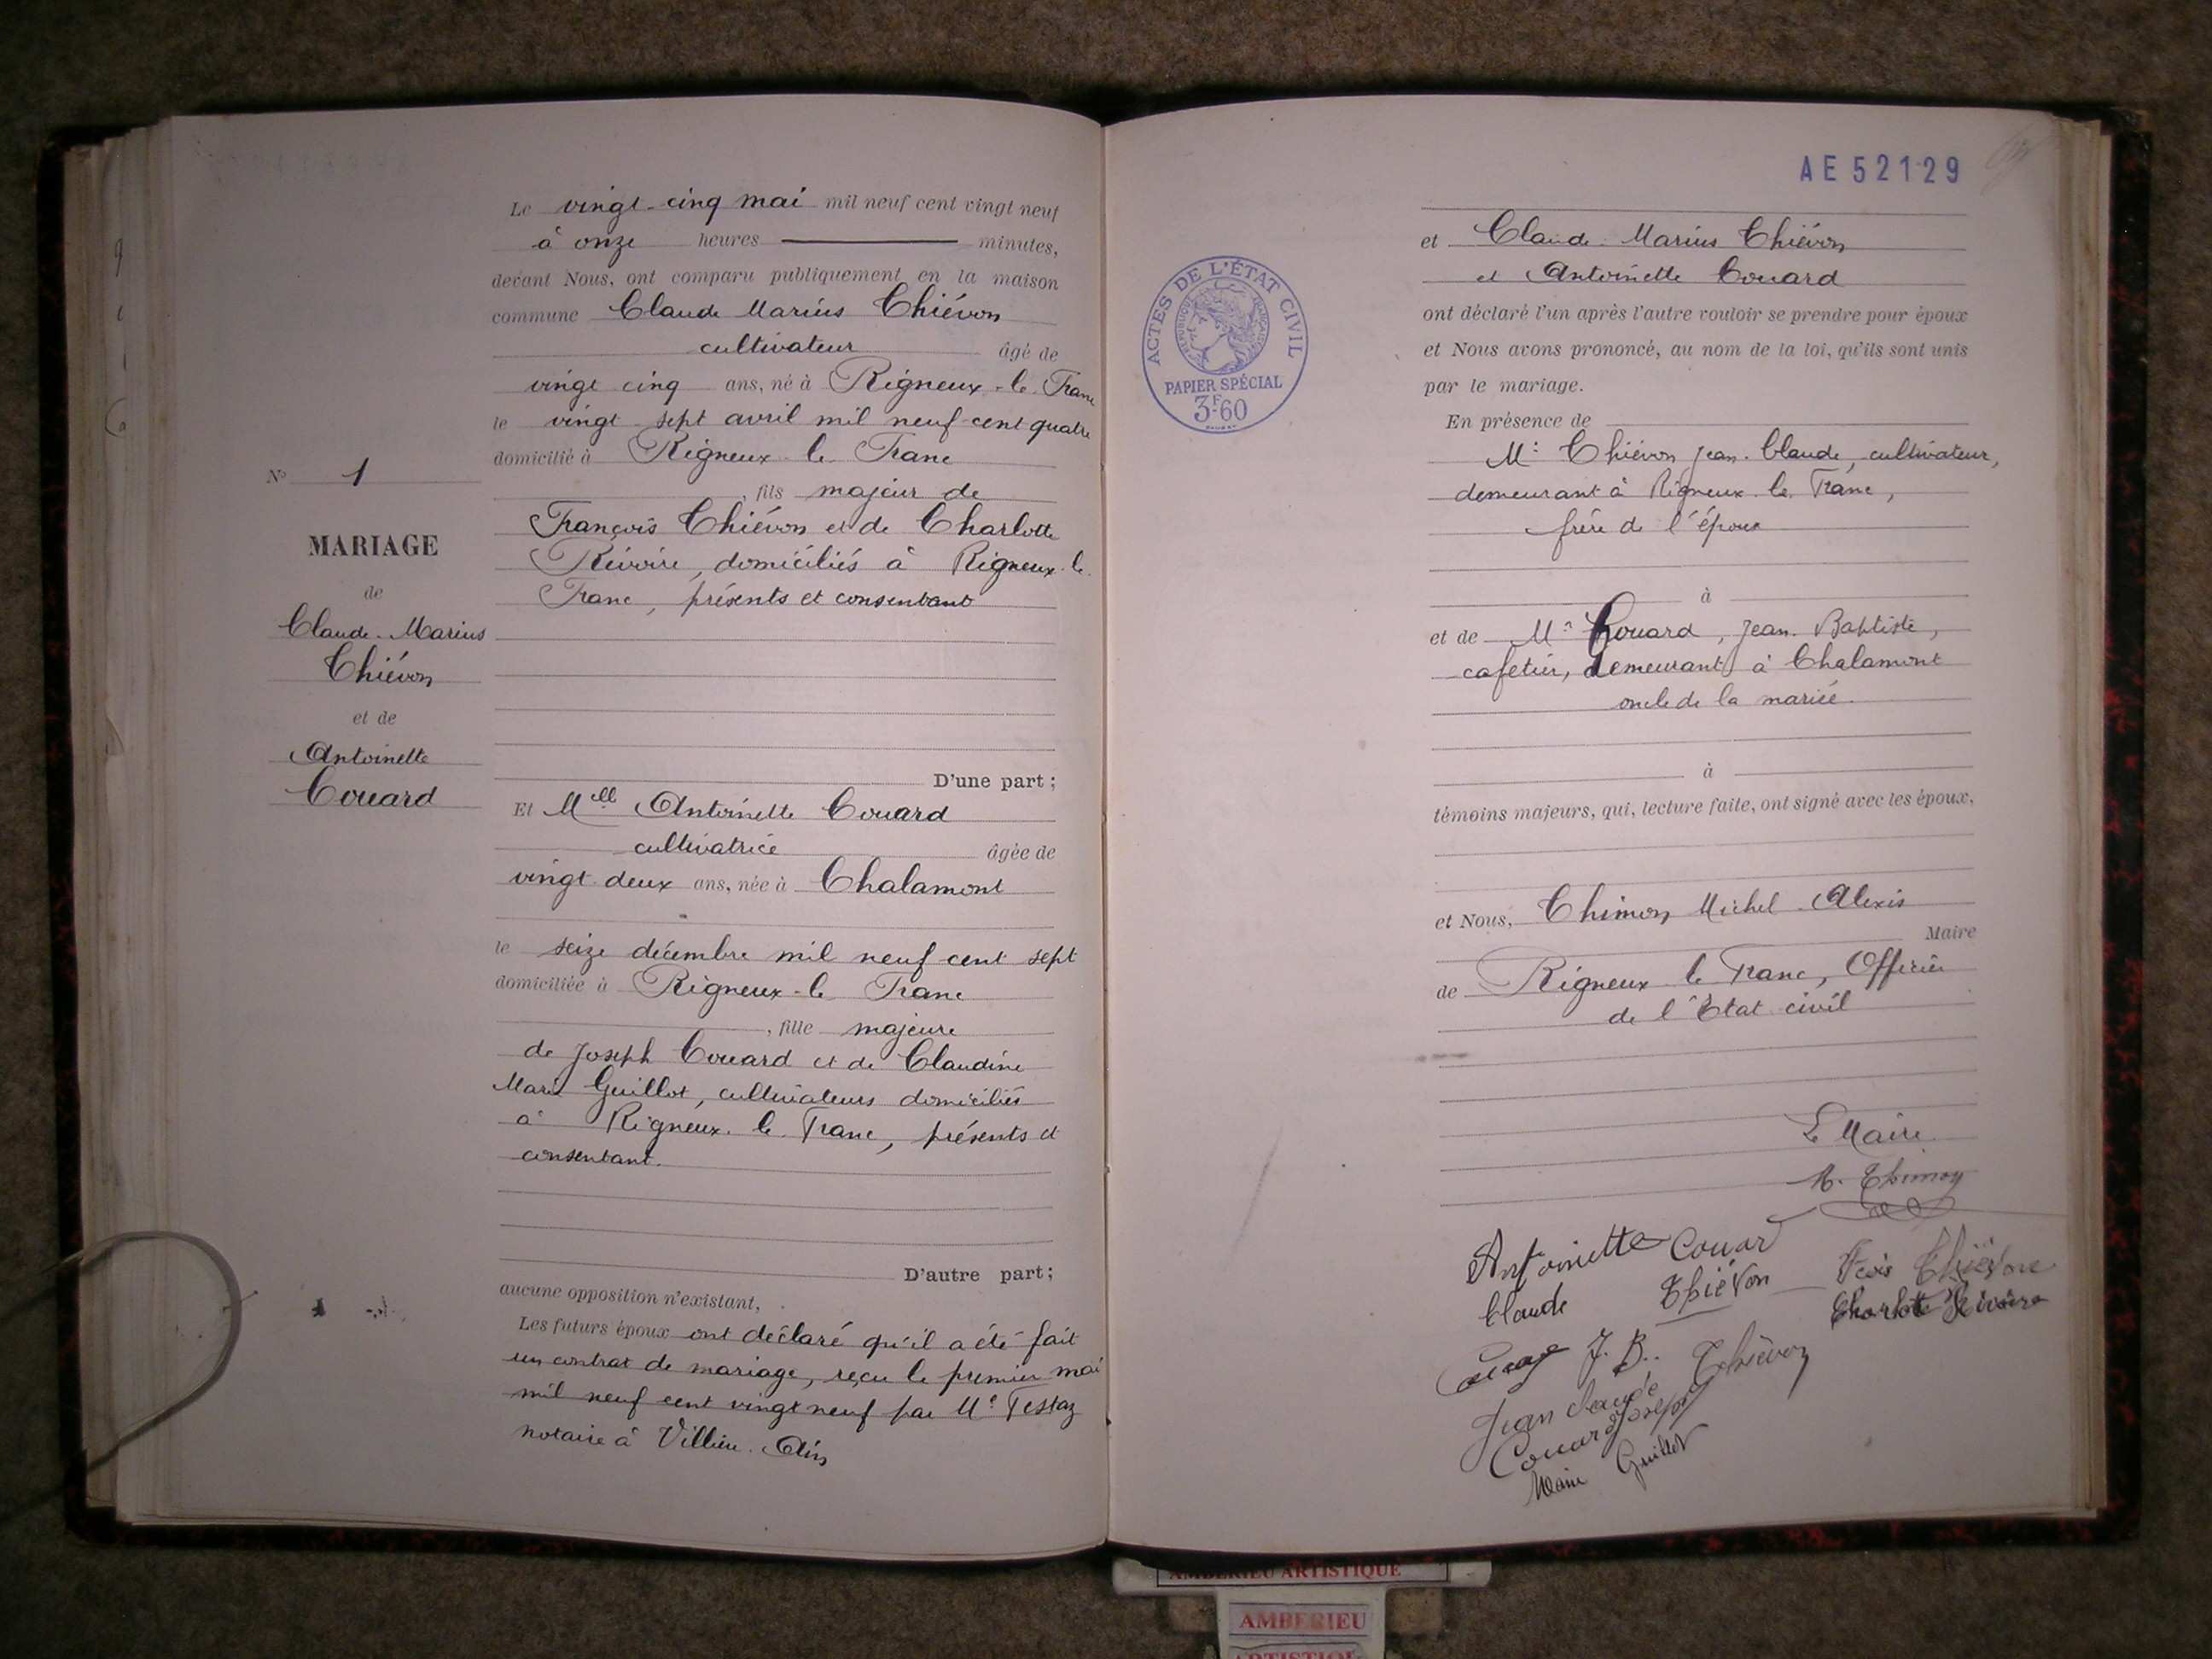 Le vingt-cinq mai mil neuf cent vingt neuf
à onze heures minutes,
devant Nous, ont comparu publiquement en la maison
commune Claude Marius Thiévon
cultivateur âgé de
vingt cinq ans, né à Rigneux-le-Franc
le vingt-sept avril mil neuf cent quatre
domicilié à Rigneux le Franc
, fils majeur de
François Thiévon et de Charlotte
Révoire, domiciliés à Rigneux-le
Franc, présents et consentant
D'une part;
Et Mlle Antoinette Couard
cultivatrice âgée de
vingt-deux ans, née à Chalamont
le seize décembre mil neuf cent sept
domiciliée à Rigneux-le Franc
, fille majeure
de Joseph Couard et de Claudine
Marie Guillot, cultivateurs domiciliés
à Rigneux-le-Franc, présents et
consentant.
D'autre part;
aucune opposition n'existant,
Les futurs époux ont déclaré qu'il a été fait
un contrat de mariage, reçu le premier mai
mil neuf cent vingt neuf par Me Testaz
notaire à Villieu. Ain
No 1
MARIAGE
de
Claude-Marius
Thiévon
et de
Antoinette
Couard
AE 52129
et Claude Marius Thiévon
et Antoinette Couard
ont déclaré l'un après l'autre vouloir se prendre pour époux
et Nous avons prononcé, au nom de la loi, qu'ils sont unis
par le mariage.
En présence de
Mr Thiévon Jean-Claude, cultivateur,
demeurant à Rigneux-le-Franc,
frère de l'époux
à
et de Mr Couard, Jean-Baptiste,
cafetier, demeurant à Chalamont
oncle de la mariée.
à
témoins majeurs, qui, lecture faite, ont signé avec les époux,
et Nous, Thimon Michel Alexis
Maire
de Rigneux le Franc, Officier
de l'Etat civil
Le Maire
M. Thimon
Antoinette Couard
Claude Thiévon
Fcois Thiévon
Charlotte Rivoire
Couard J. B.
Jean Claude Thiévon
Couard Joseph
Marie Guillot
ACTES DE L'ÉTAT CIVIL
RÉPUBLIQUE FRANÇAISE
PAPIER SPÉCIAL
3F60
AMBERIEU ARTISTIQUE
AMBERIEU
ARTISTIQUE